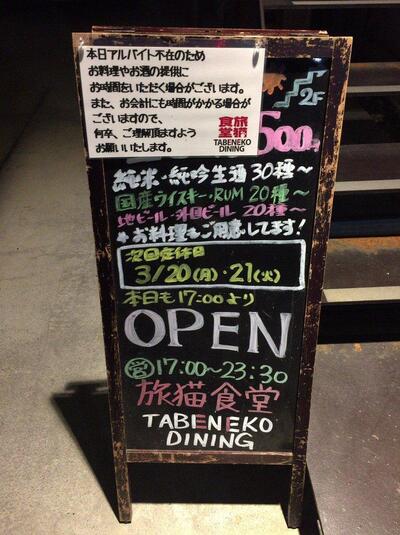 本日アルバイト不在のため
お料理やお酒の提供に
お時間をいただく場合がございます。
また、お会計にも時間がかかる場合が
ございますので、
何卒、ご理解頂ますよう
お願いいたします。
旅猫
食堂
TABENEKO
DINING
2F
500
純米・純吟生酒 30種〜
国産ウイスキー・RUM 20種〜
地ビール・外国ビール 20種〜
お料理もご用意してます!
次回定休日
3/20(月)・21(火)
本日も17:00より
OPEN
営 17:00〜23:30
旅猫食堂
TABENEKO
DINING